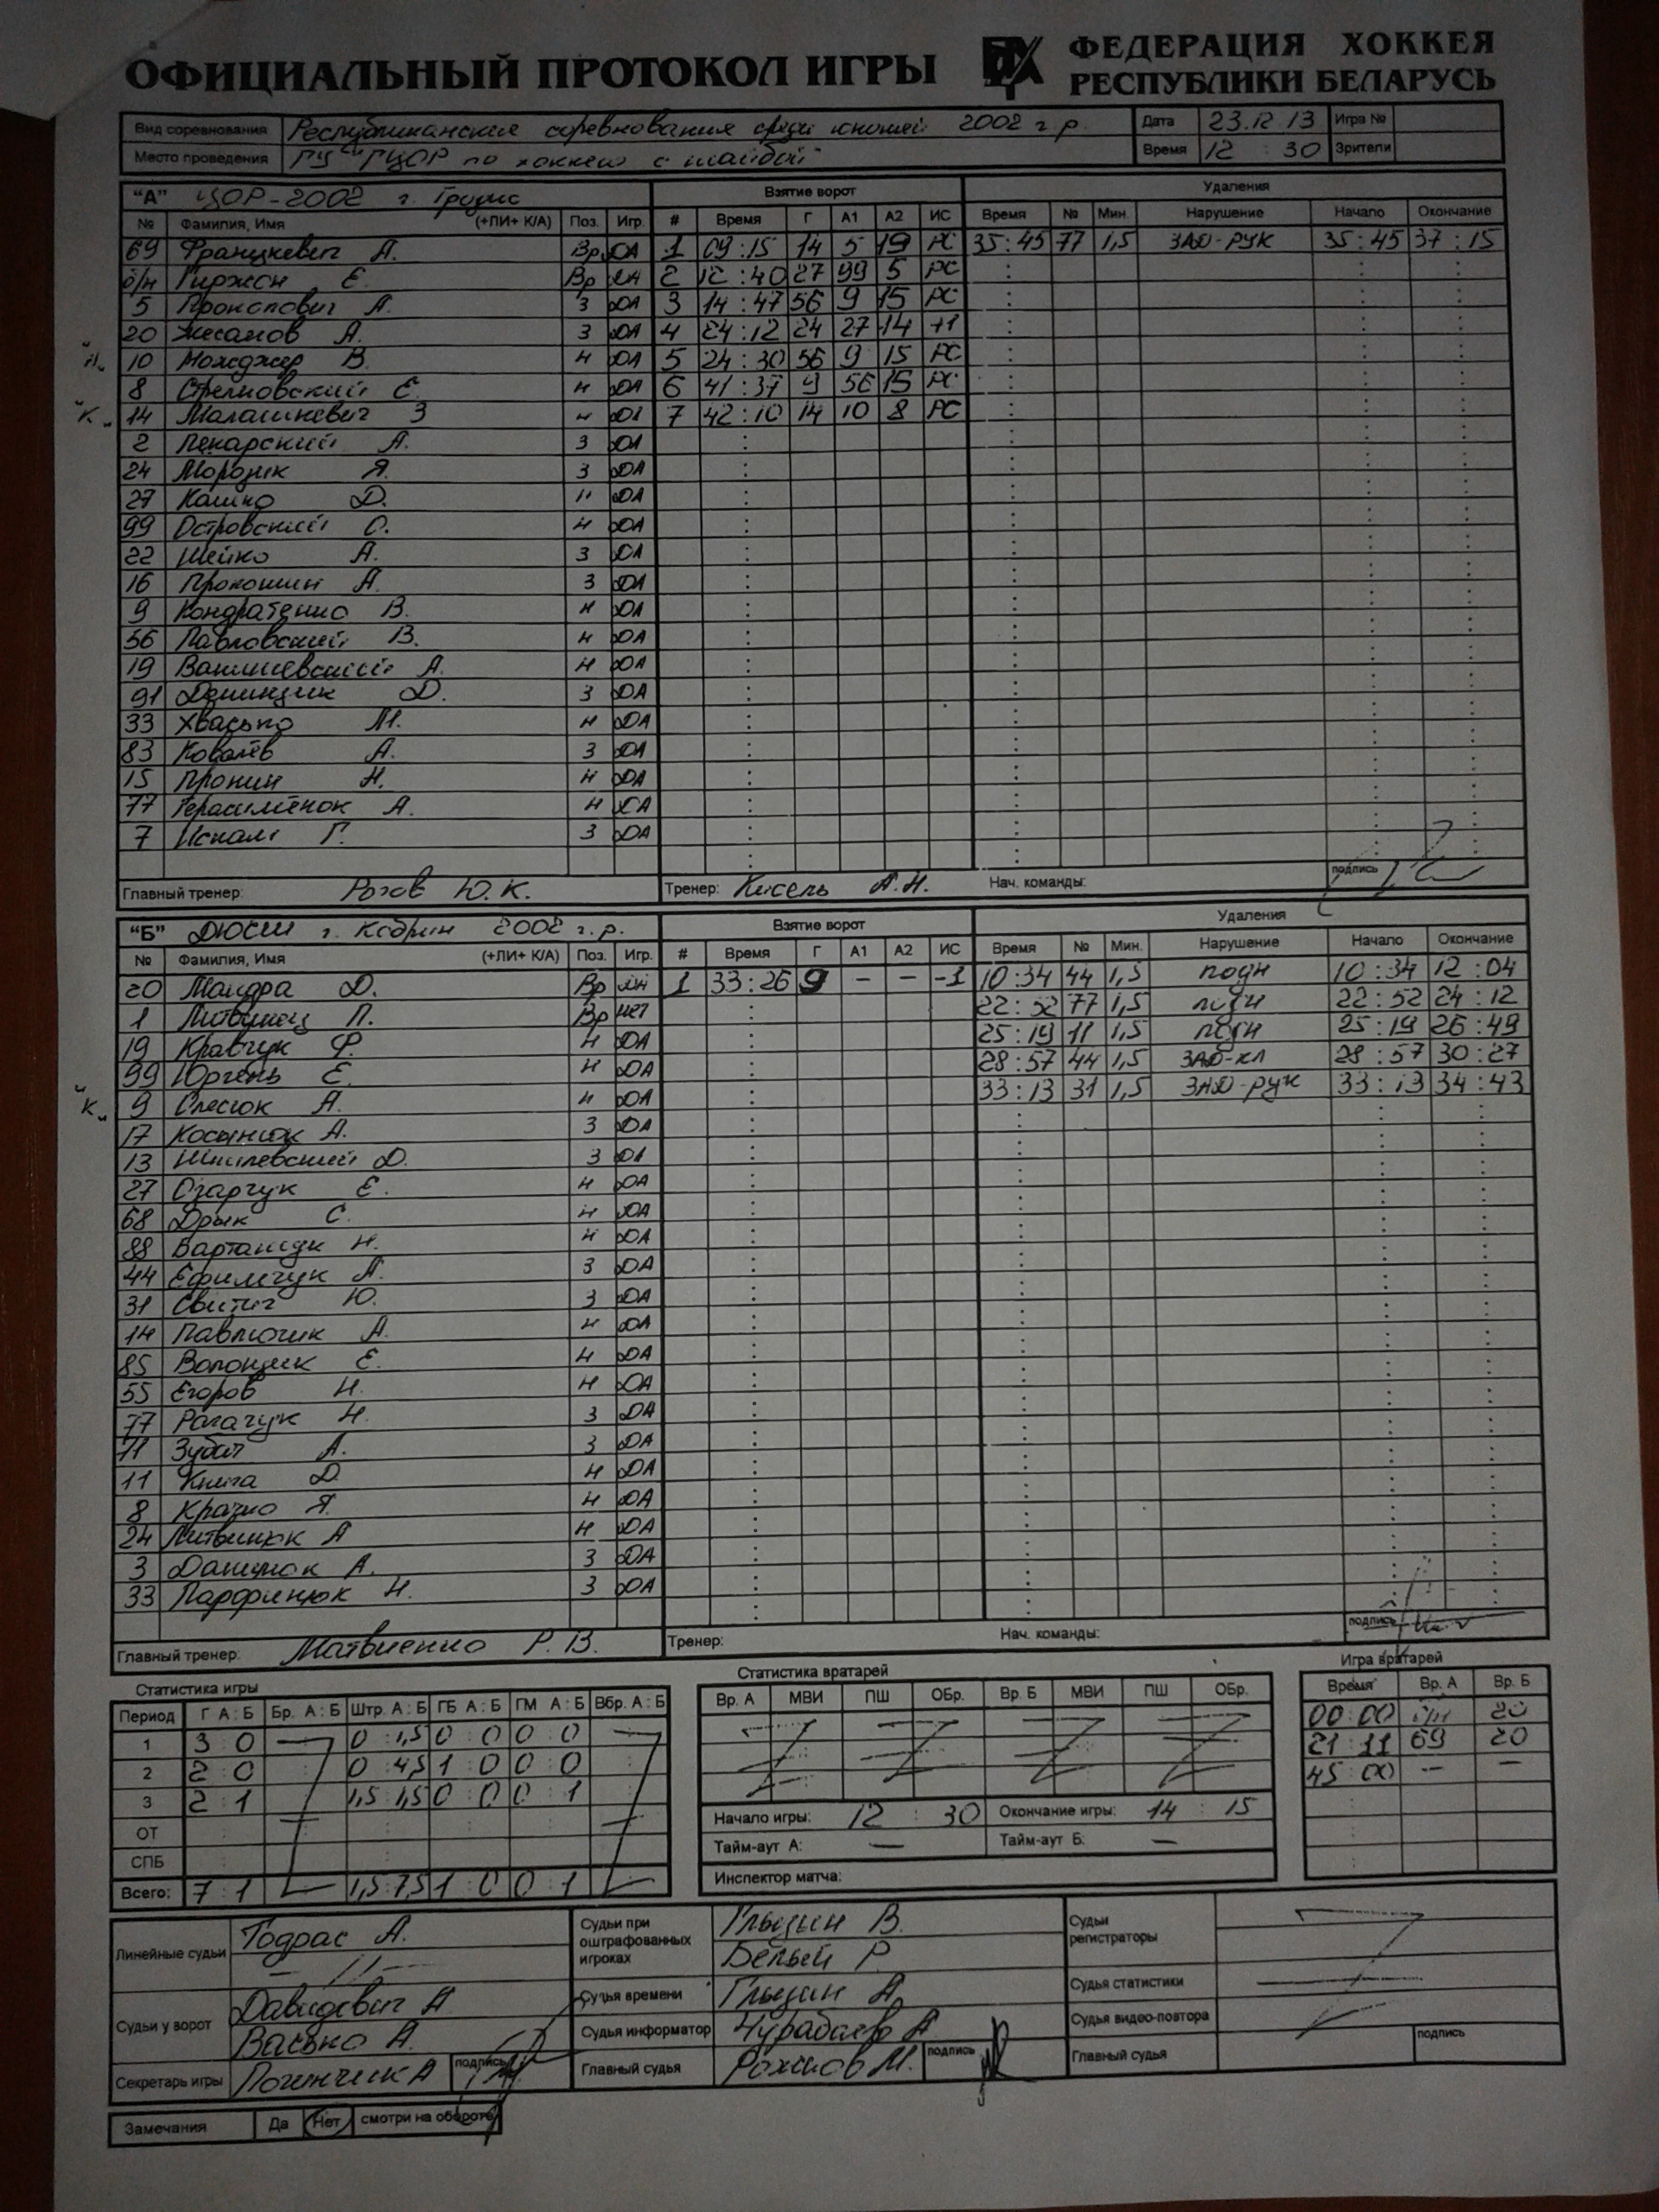 ОФИЦИАЛЬНЫЙ ПРОТОКОЛ ИГРЫ БФХ ФЕДЕРАЦИЯ ХОККЕЯ
РЕСПУБЛИКИ БЕЛАРУСЬ
Вид соревнования Республиканские соревнования среди юношей 2002 г.р. Дата 23.12.13 Игра №
Место проведения ГУ "ГЦОР по хоккею с шайбой" Время 12 : 30 Зрители
"А" ЦОР-2002 г. Гродно Взятие ворот Удаления
№ Фамилия, Имя (+ПИ+ К/А) Поз. Игр. # Время Г А1 А2 ИС Время № Мин. Нарушение Начало Окончание
69 Францкевич А. Вр ДА 1 09:15 14 5 19 РС 35:45 77 1,5 ЗАД-РУК 35:45 37:15
б/н Гиржон Е. Вр ДА 2 12:40 27 99 5 РС
5 Прокопович А. З ДА 3 14:47 56 9 15 РС
20 А. З ДА 4 24:12 24 27 14 +1
"А" 10 В. Н ДА 5 24:30 56 9 15 РС
8 Стрелковский Е. Н ДА 6 41:37 9 56 15 РС
"К" 14 Малашкевич З Н ДА 7 42:10 14 10 8 РС
2 Пекарский А. З ДА
24 Морозик Я. З ДА
27 Кашко Д. Н ДА
99 Островский О. Н ДА
22 Шейко А. З ДА
16 Прокошин А. З ДА
9 Кондратенко В. Н ДА
56 Павловский В. Н ДА
19 А. Н ДА
91 Денищик Д. З ДА
33 Хвасько М. Н ДА
83 Ковалёв А. З ДА
15 Пронин Н. Н ДА
77 Герасимёнок А. Н ДА
7 Г. З ДА
Главный тренер: Рогов Ю.К. Тренер: Кисель А.Н. Нач. команды: подпись
"Б" ДЮСШ г. Кобрин 2002 г.р. Взятие ворот Удаления
№ Фамилия, Имя (+ПИ+ К/А) Поз. Игр. # Время Г А1 А2 ИС Время № Мин. Нарушение Начало Окончание
20 Мандра Д. Вр ДА 1 33:26 9 – – -1 10:34 44 1,5 подн 10:34 12:04
1 Литвинец П. Вр нет 22:52 77 1,5 подн 22:52 24:12
19 Кравчук Ф. Н ДА 25:19 11 1,5 подн 25:19 26:49
99 Юргень Е. Н ДА 28:57 44 1,5 ЗАД-КЛ 28:57 30:27
"К" 9 Слесюк А. Н ДА 33:13 31 1,5 ЗАД-РУК 33:13 34:43
17 Косынюк А. З ДА
13 Шпилевский Д. З ДА
27 Озарчук Е. Н ДА
68 Дрык С. Н ДА
88 Н. Н ДА
44 Ефимчук А. З ДА
31 Свитич Ю. З ДА
14 Павлючик А. Н ДА
85 Волонщик Е. Н ДА
55 Егоров Н. Н ДА
77 Рогачук Н. З ДА
71 Зубач А. З ДА
11 Книга Д. Н ДА
8 Крачко Я. Н ДА
24 Литвинюк А Н ДА
3 Данилюк А. З ДА
33 Парфинюк Н. З ДА
Главный тренер: Матвиенко Р.В. Тренер: Нач. команды: подпись
Статистика игры Статистика вратарей Игра вратарей
Период Г А:Б Бр. А:Б Штр. А:Б ГБ А:Б ГМ А:Б Вбр. А:Б Вр. А МВИ ПШ ОБр. Вр. Б МВИ ПШ ОБр. Время Вр. А Вр. Б
1 3 0 0 : 1,5 0 : 0 0 : 0 00:00 б/н 20
2 2 0 0 4,5 1 : 0 0 : 0 21:11 69 20
3 2 1 1,5 1,5 0 : 0 0 : 1 45:00 – –
ОТ Начало игры: 12 : 30 Окончание игры: 14 : 15
СПБ Тайм-аут А: – Тайм-аут Б: –
Всего: 7 : 1 1,5 7,5 1 : 0 0 : 1 Инспектор матча:
Линейные судьи Тодрас А. Судьи при оштрафованных игроках Глызин В. Судьи регистраторы
–//– Белый Р.
Судьи у ворот Давидевич А Судья времени Глызин А. Судья статистики
Васько А. Судья информатор Чурабаев А Судья видео-повтора
Секретарь игры Логинчик А подпись Главный судья Рожков М. подпись Главный судья подпись
Замечания Да Нет смотри на обороте